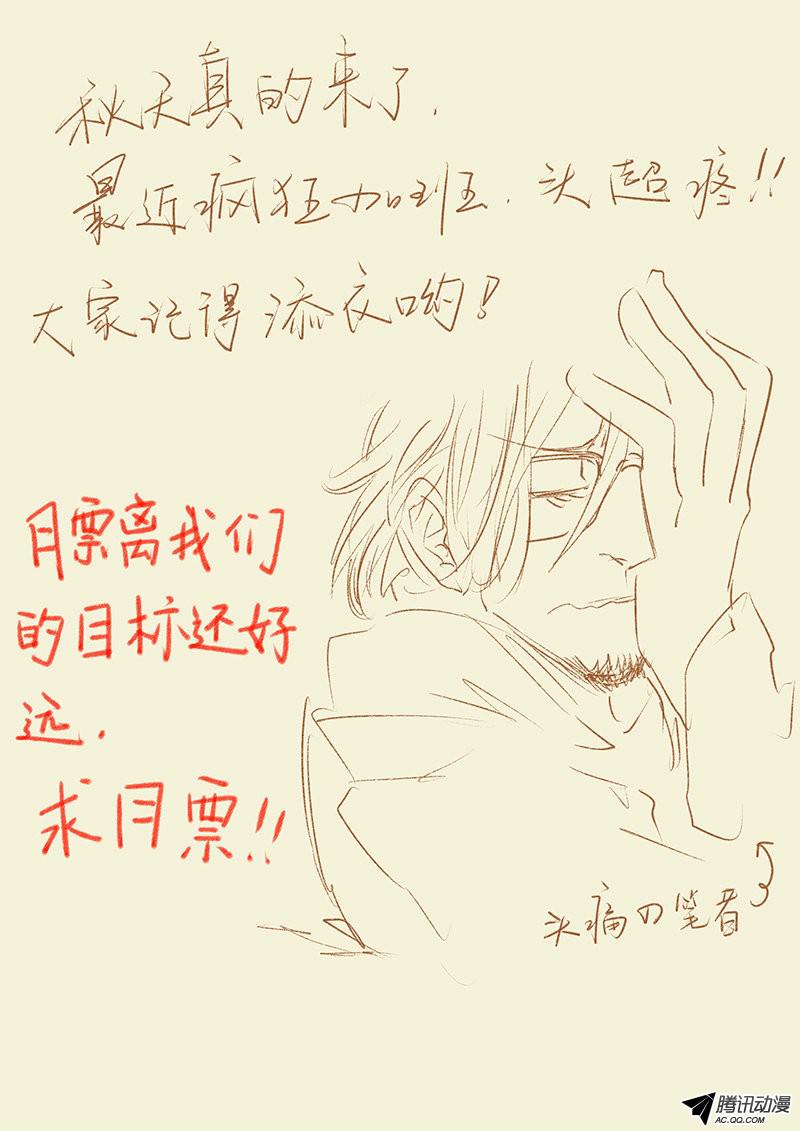 秋天真的来了.
最近疯狂加班.头超疼!!
大家记得添衣哟!
月票离我们
的目标还好
远.
求月票!!
头痛の笔者
腾讯动漫
AC.QQ.COM